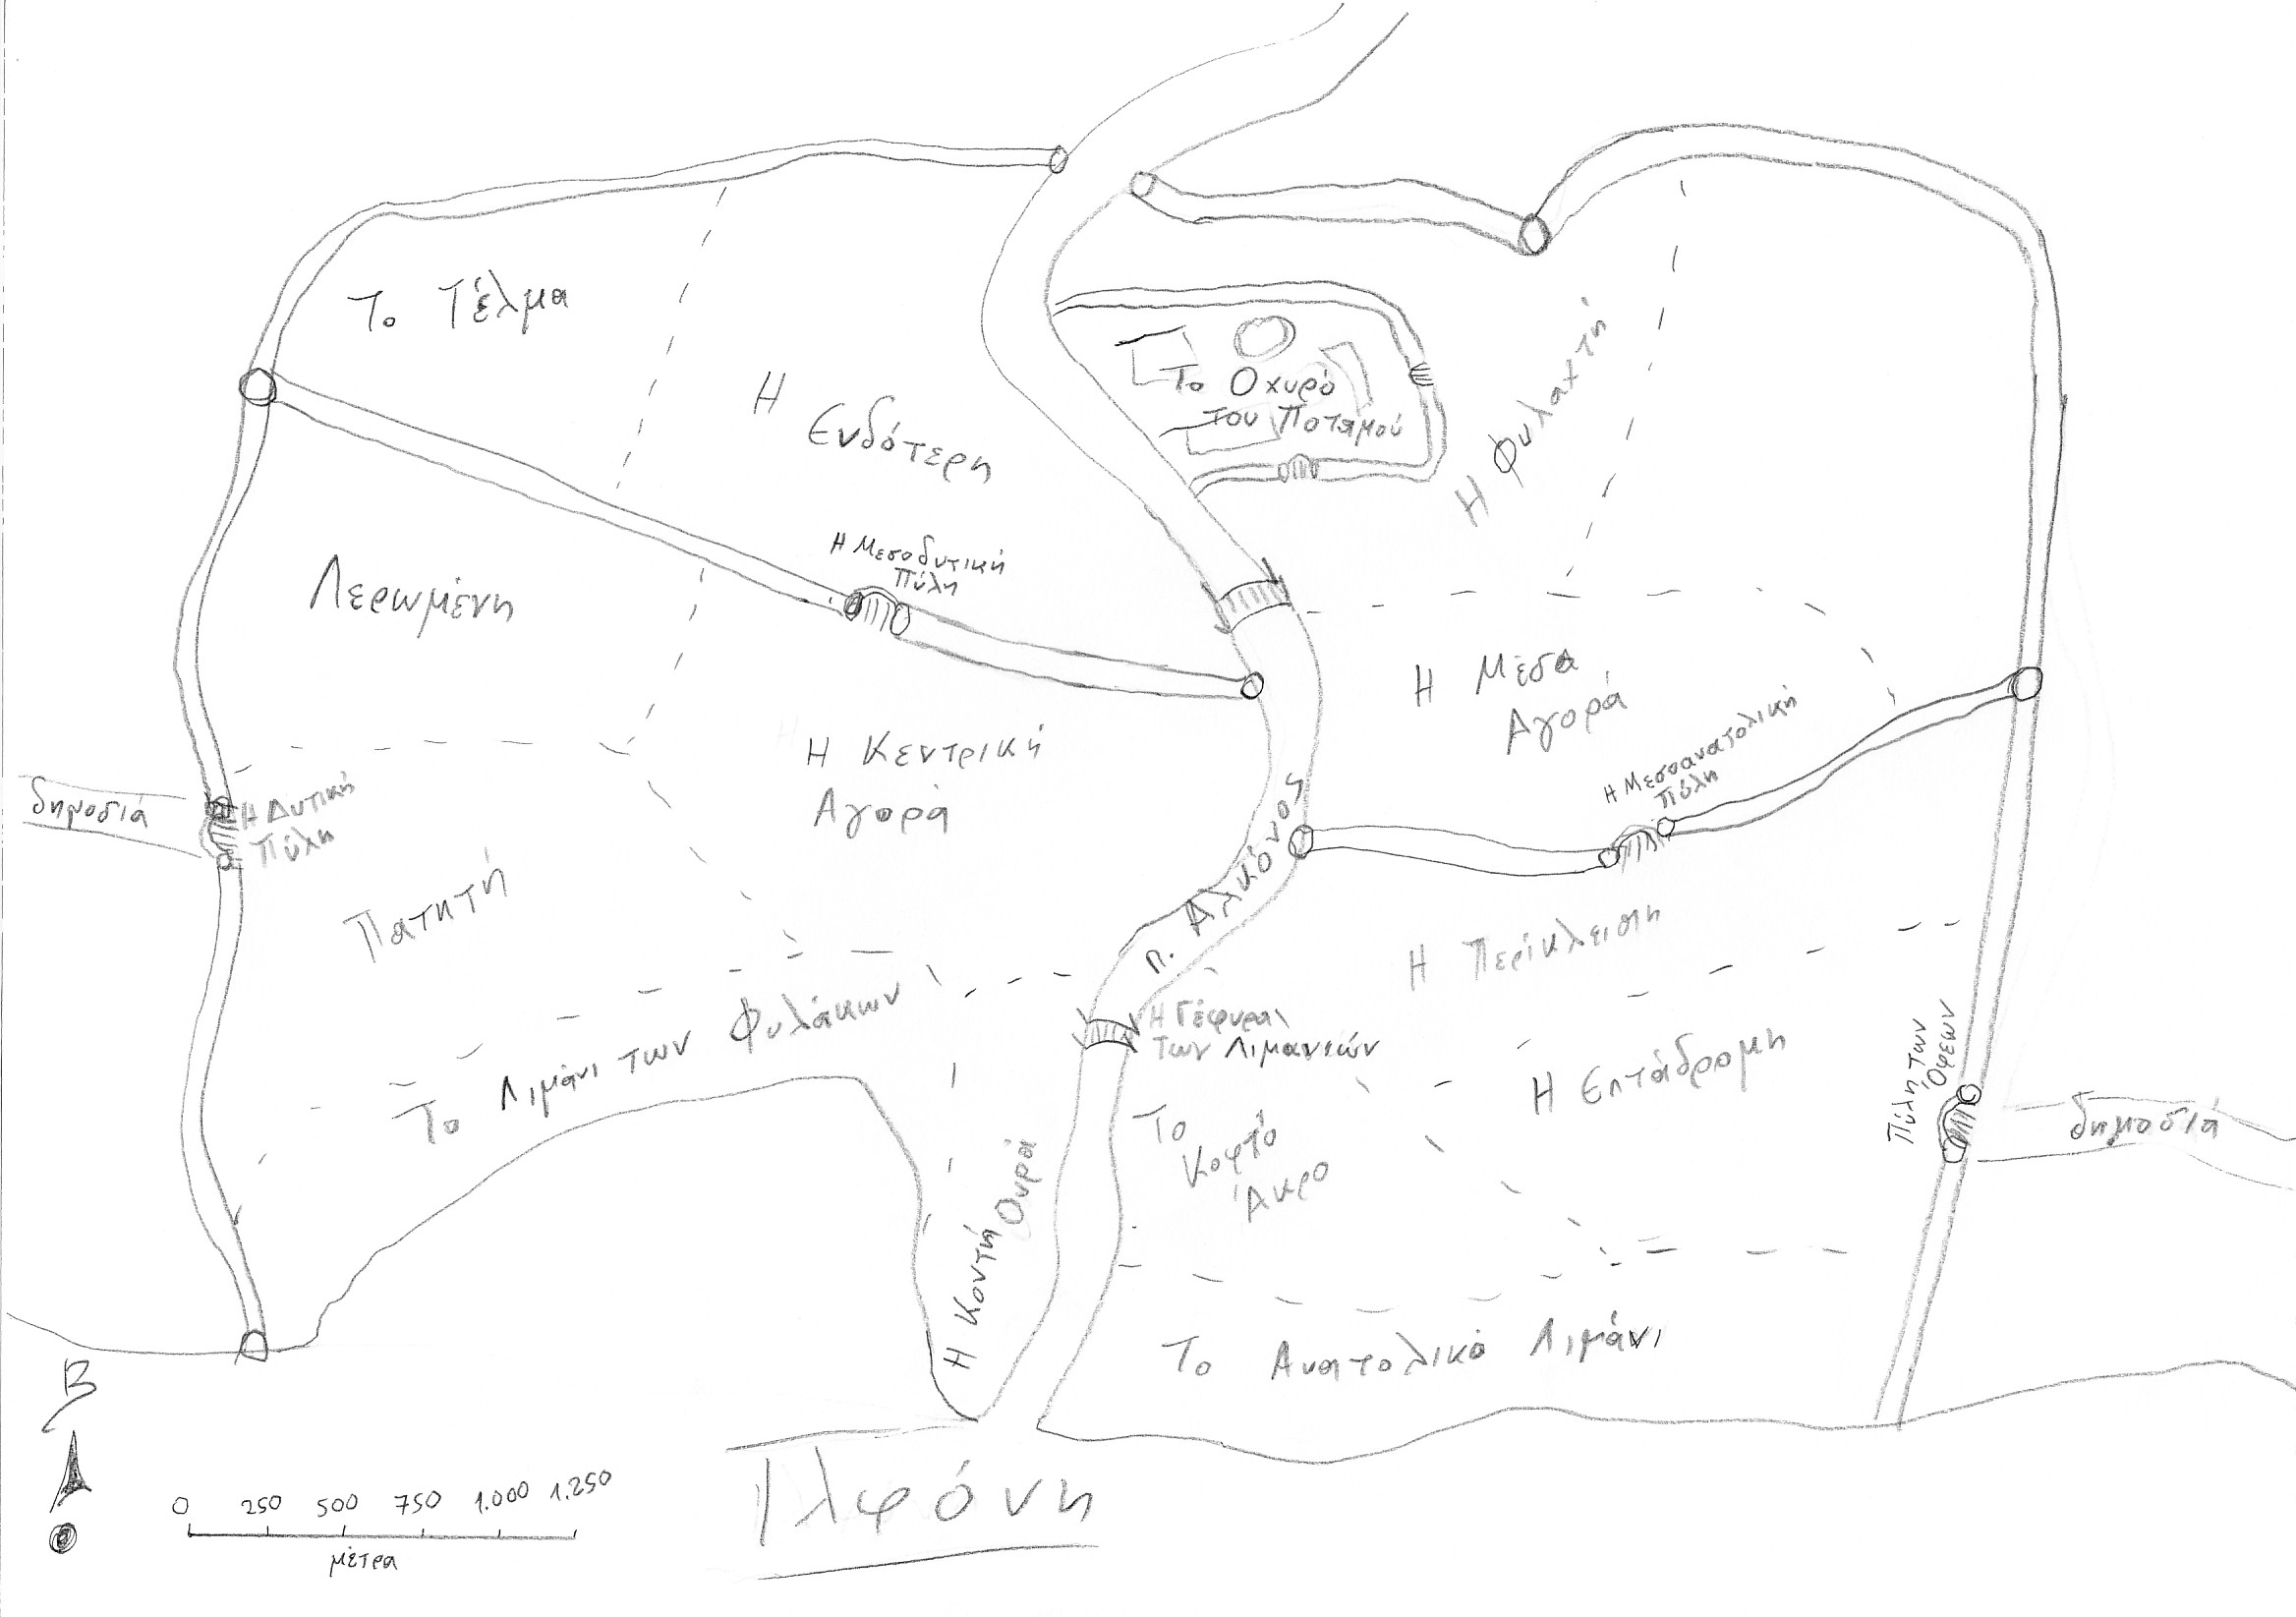 Το Τέλμα
Η
Ενδότερη
Το Οχυρό
του Ποταμού
Η Φυλαχτή
Λερωμένη
Η Μεσοδυτική
Πύλη
Η Μέσα
Αγορά
Η Κεντρική
Αγορά
Η Μεσοανατολική
Πύλη
δημοσιά
Η Δυτική
Πύλη
Πατητή
π. Αλκόνος
Η Περίκλειση
Το Λιμάνι των Φυλάκων
Η Γέφυρα
των Λιμανιών
Η Επτάδρομη
Πύλη των
Όφεων
δημοσιά
Το
Κοφτό
Άκρο
Η Κοντή Ουρά
Το Ανατολικό Λιμάνι
Β
0 250 500 750 1.000 1.250
μέτρα
Ιλφόνη